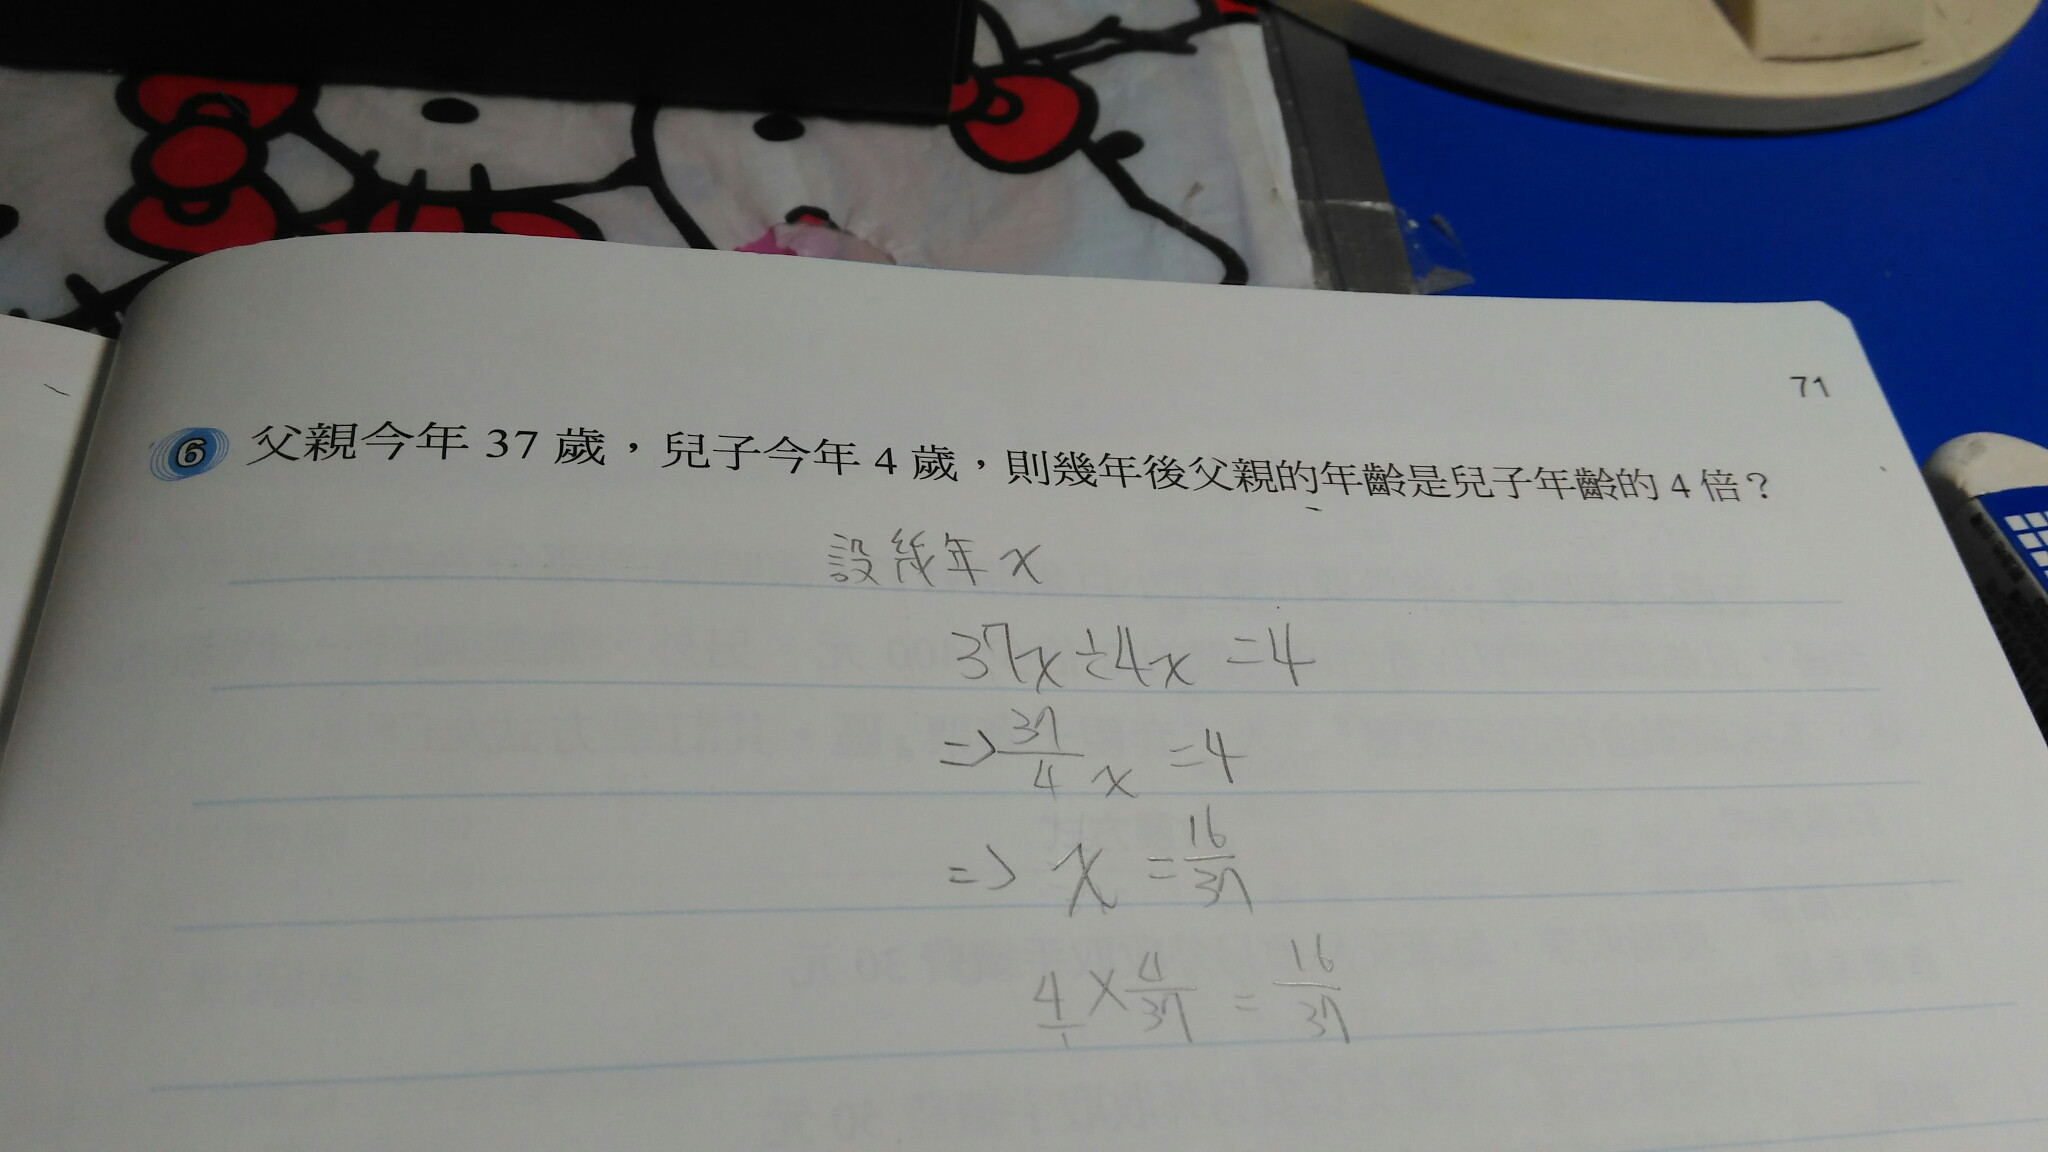 71
6 父親今年 37 歲，兒子今年 4 歲，則幾年後父親的年齡是兒子年齡的 4 倍？
設幾年 x
37x÷4x =4
=> 37/4 x =4
=> x = 16/37
4/1 × 4/37 = 16/37